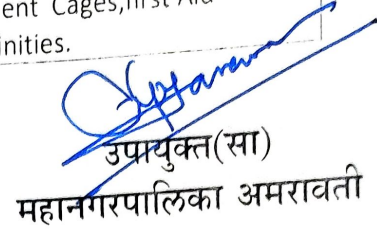 ent Cages, first Aid
inities.
उपायुक्त(सा)
महानगरपालिका अमरावती